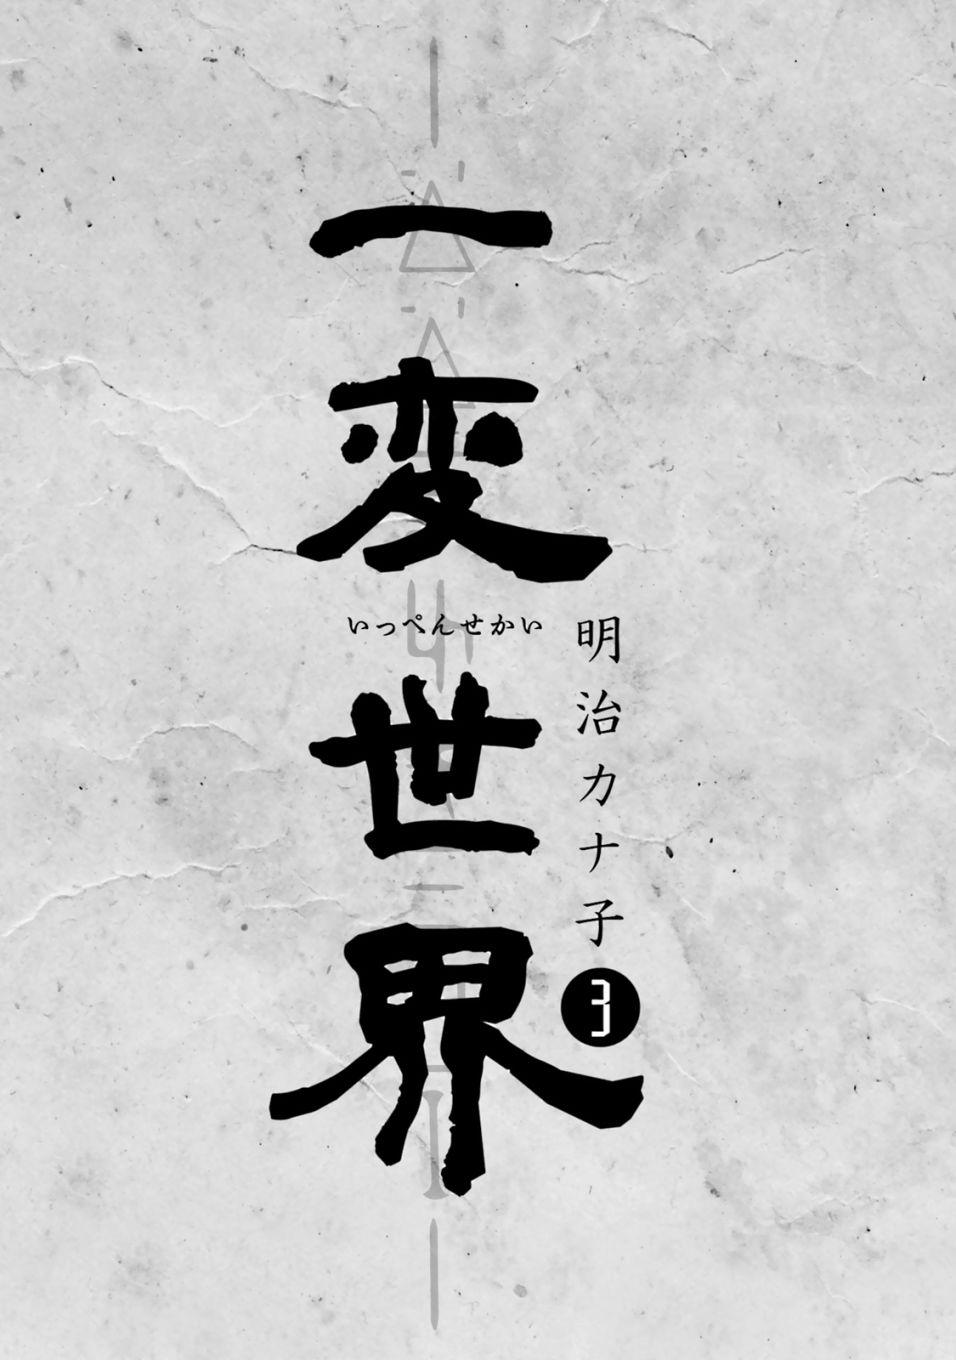 一変世界
いっぺんせかい
明治カナ子
3